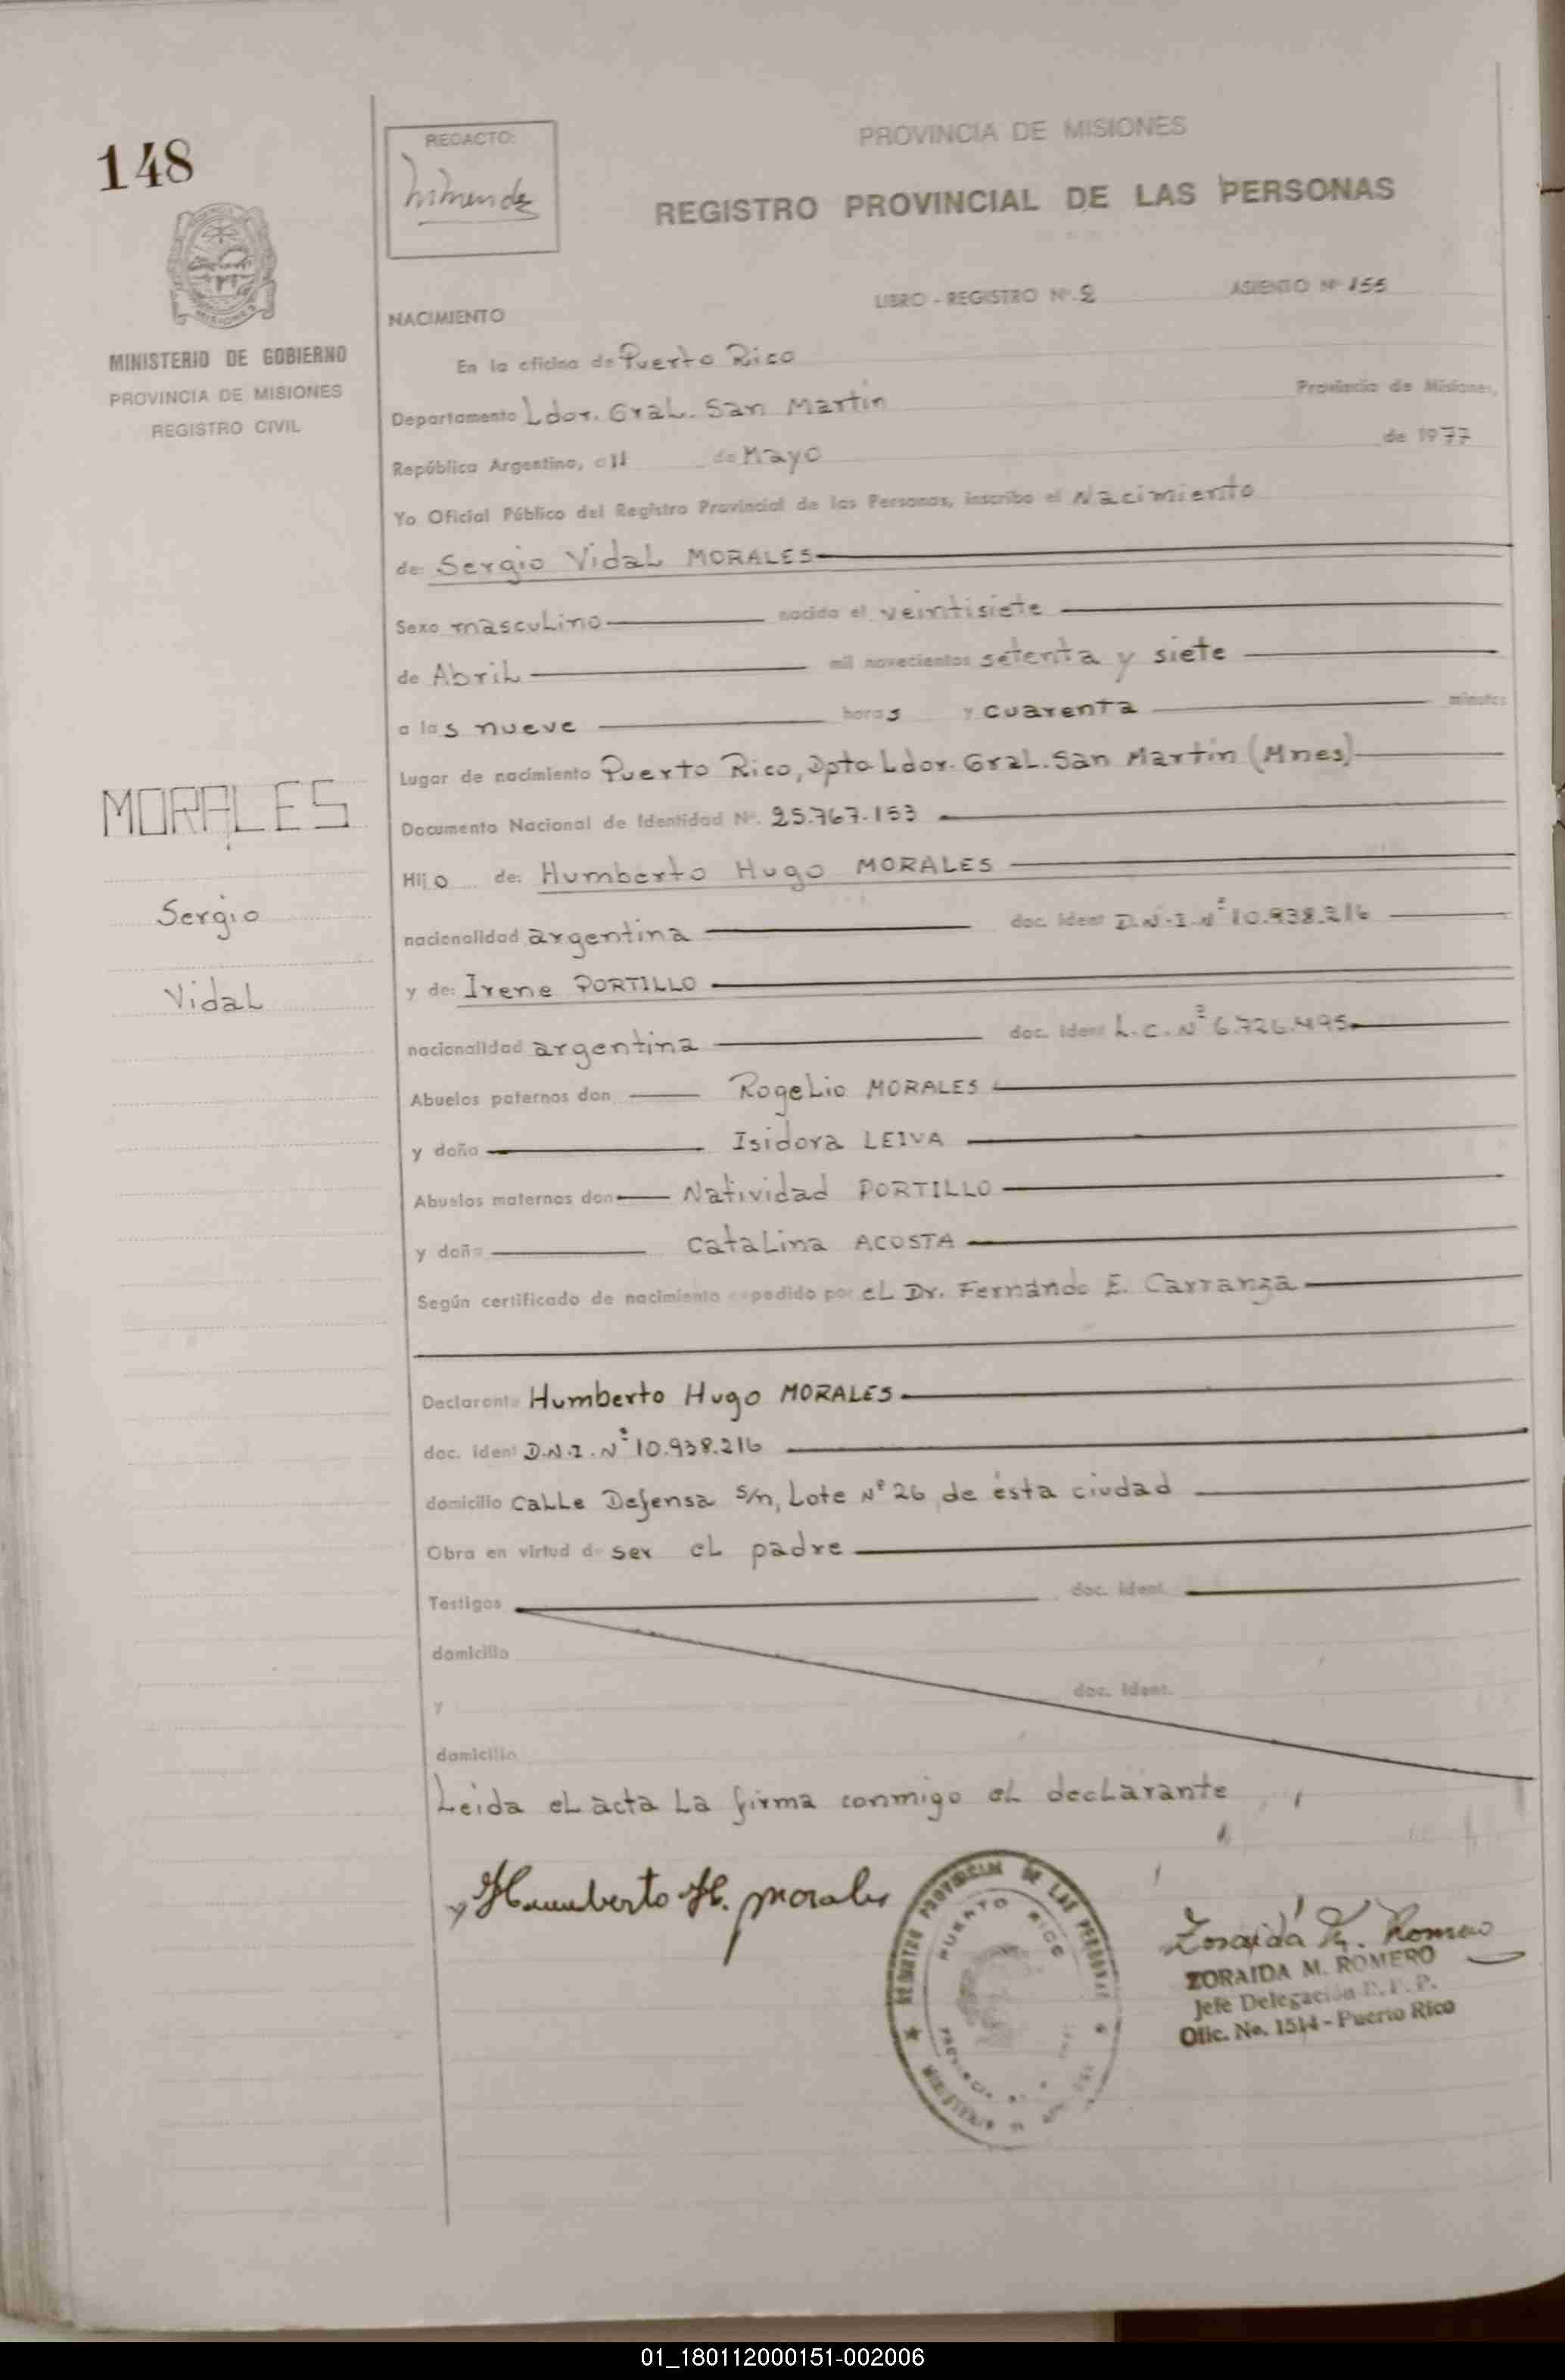 148
REDACTO:
PROVINCIA DE MISIONES
REGISTRO PROVINCIAL DE LAS PERSONAS
MISIONES
MINISTERIO DE GOBIERNO
PROVINCIA DE MISIONES
REGISTRO CIVIL
LIBRO - REGISTRO Nº. 2 ASIENTO Nº 155
NACIMIENTO
En la oficina de Puerto Rico
Departamento Ldor. Gral. San Martin Provincia de Misiones,
República Argentina, a 11 de Mayo de 1977
Yo Oficial Público del Registro Provincial de las Personas, inscribo el Nacimiento
de: Sergio Vidal MORALES
Sexo masculino nacido el veintisiete
de Abril mil novecientos setenta y siete
a las nueve horas y cuarenta minutos
Lugar de nacimiento Puerto Rico, Dpto Ldor. Gral. San Martin (Mnes)
Documento Nacional de Identidad Nº. 25.767.153
Hijo de: Humberto Hugo MORALES
nacionalidad argentina doc. ident D.N.I. Nº 10.938.216
y de: Irene PORTILLO
nacionalidad argentina doc. ident L.C. Nº 6.726.495
Abuelos paternos don Rogelio MORALES
y doña Isidora LEIVA
Abuelos maternos don Natividad PORTILLO
y doña Catalina ACOSTA
Según certificado de nacimiento expedido por el Dr. Fernando E. Carranza
Declarante Humberto Hugo MORALES
doc. ident D.N.I. Nº 10.938.216
domicilio Calle Defensa s/n, Lote Nº 26 de ésta ciudad
Obra en virtud de ser el padre
Testigos doc. ident.
domicilio
y doc. ident.
domicilio
Leida el acta la firma conmigo el declarante
MORALES
Sergio
Vidal
Humberto H. Morales
REGISTRO PROVINCIAL DE LAS PERSONAS
PUERTO RICO
Zoraida M. Romero
ZORAIDA M. ROMERO
Jefe Delegación R. P. P.
Ofic. No. 1514 - Puerto Rico
01_180112000151-002006